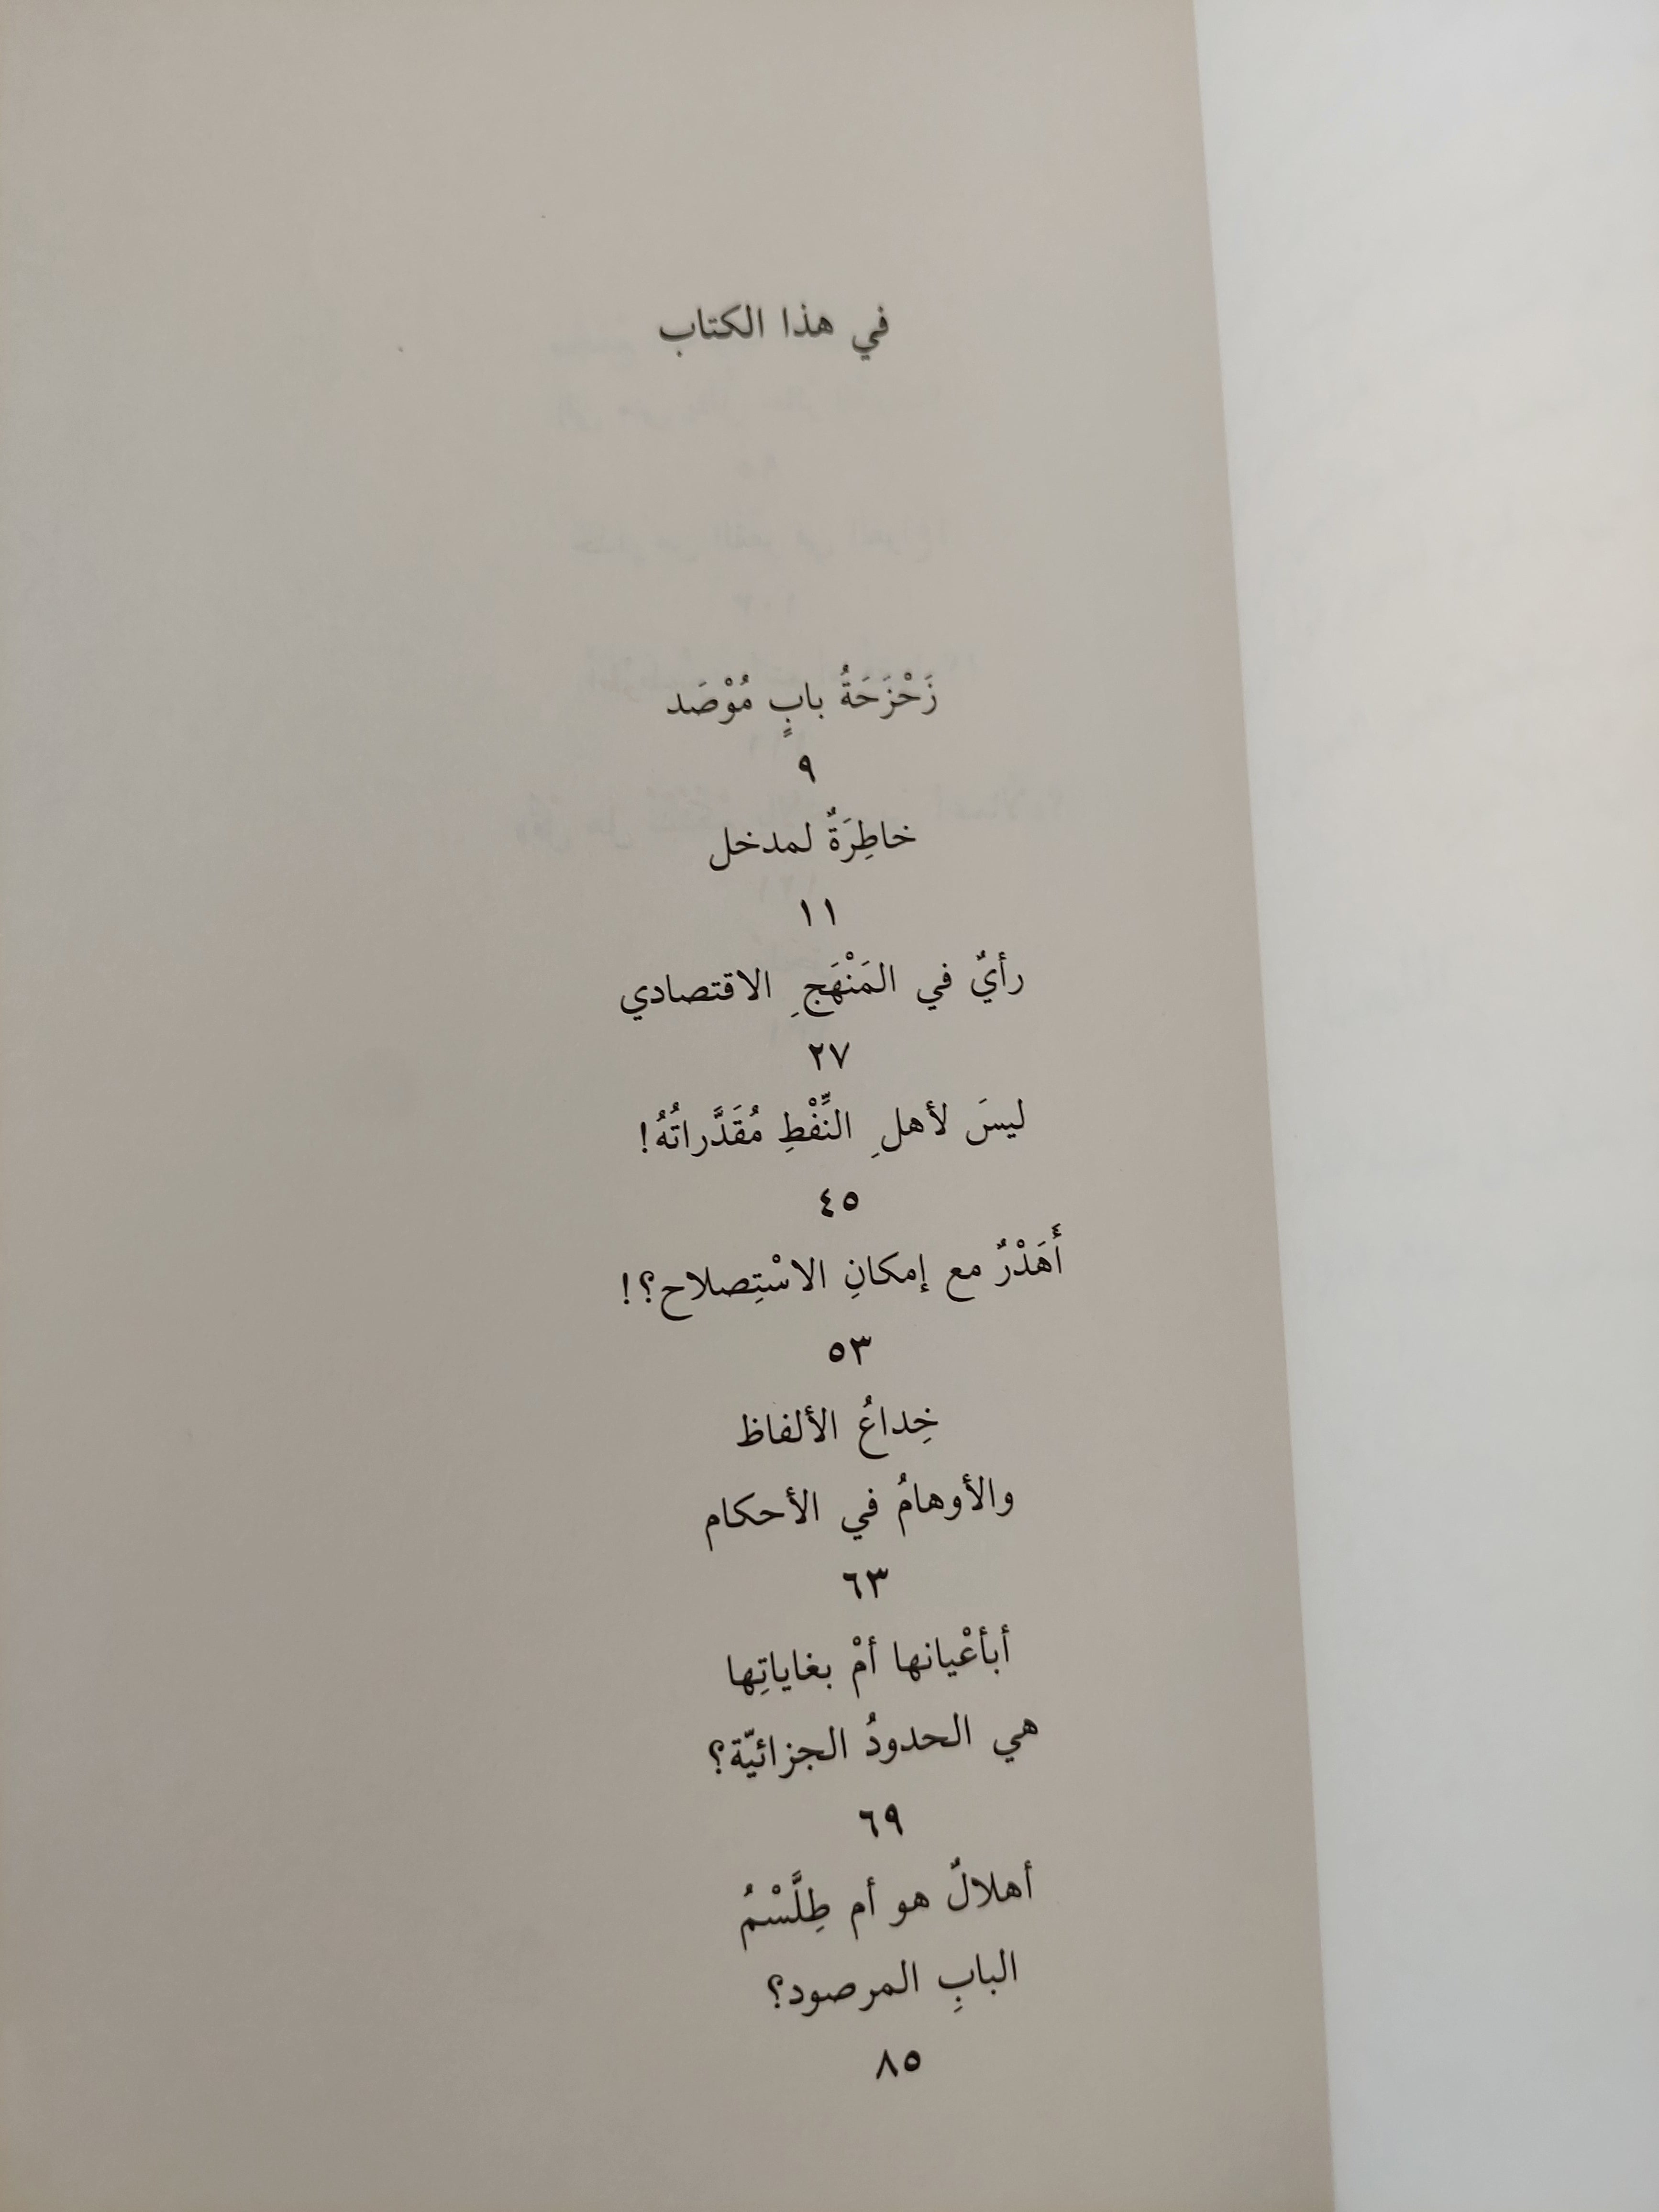 في هذا الكتاب
زَحْزَحَةُ بابٍ مُوْصَد
٩
خاطِرَةٌ لمدخل
١١
رأيٌ في المَنْهَجِ الاقتصادي
٢٧
ليسَ لأهلِ النِّفْطِ مُقَدَّراتُهُ!
٤٥
أَهَدْرٌ مع إمكانِ الاسْتِصلاح؟!
٥٣
خِداعُ الألفاظ
والأوهامُ في الأحكام
٦٣
أبأعْيانها أمْ بغاياتِها
هي الحدودُ الجزائيّة؟
٦٩
أهلالٌ هو أم طِلَّسْمُ
البابِ المرصود؟
٨٥